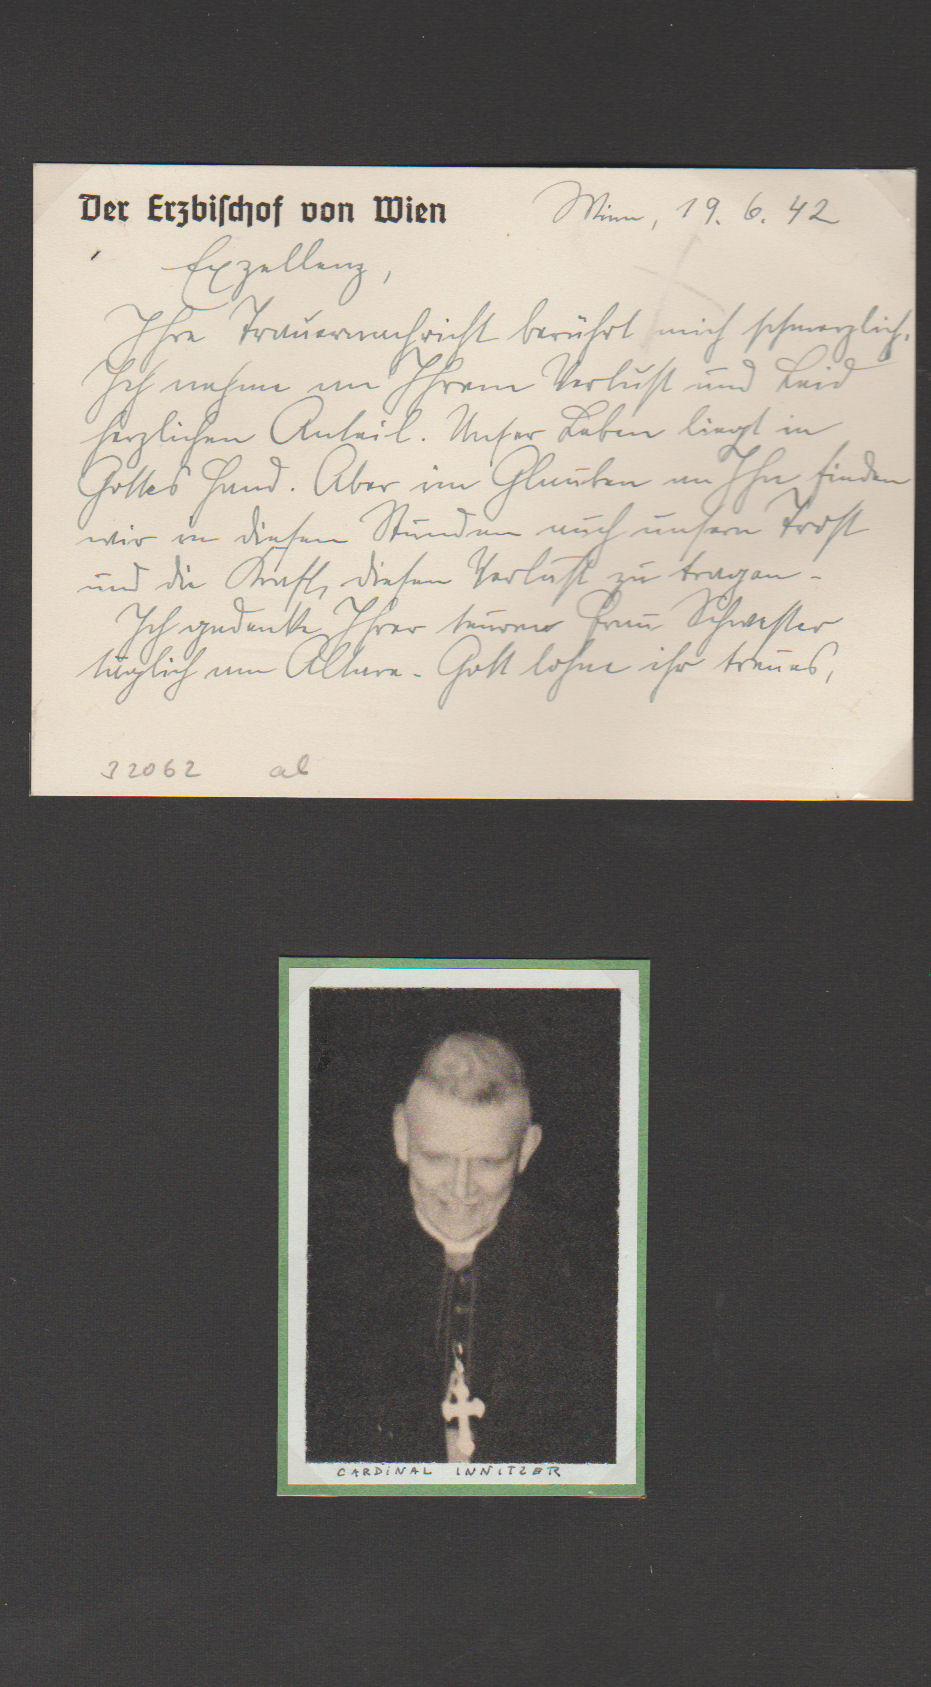 Der Erzbischof von Wien
Wien, 19. 6. 42
Exzellenz,
Ihre Trauernachricht berührt mich schmerzlich.
Ich nehme an Ihrem Verlust und Leid
herzlichen Anteil. Unser Leben liegt in
Gottes Hand. Aber im Glauben an Ihn finden
wir in diesen Stunden auch unsern Trost
und die Kraft, diesen Verlust zu tragen.
Ich gedenke Ihrer teuren Frau Schwester
täglich am Altare. Gott lohne ihr treues,
32062 ab
CARDINAL INNITZER